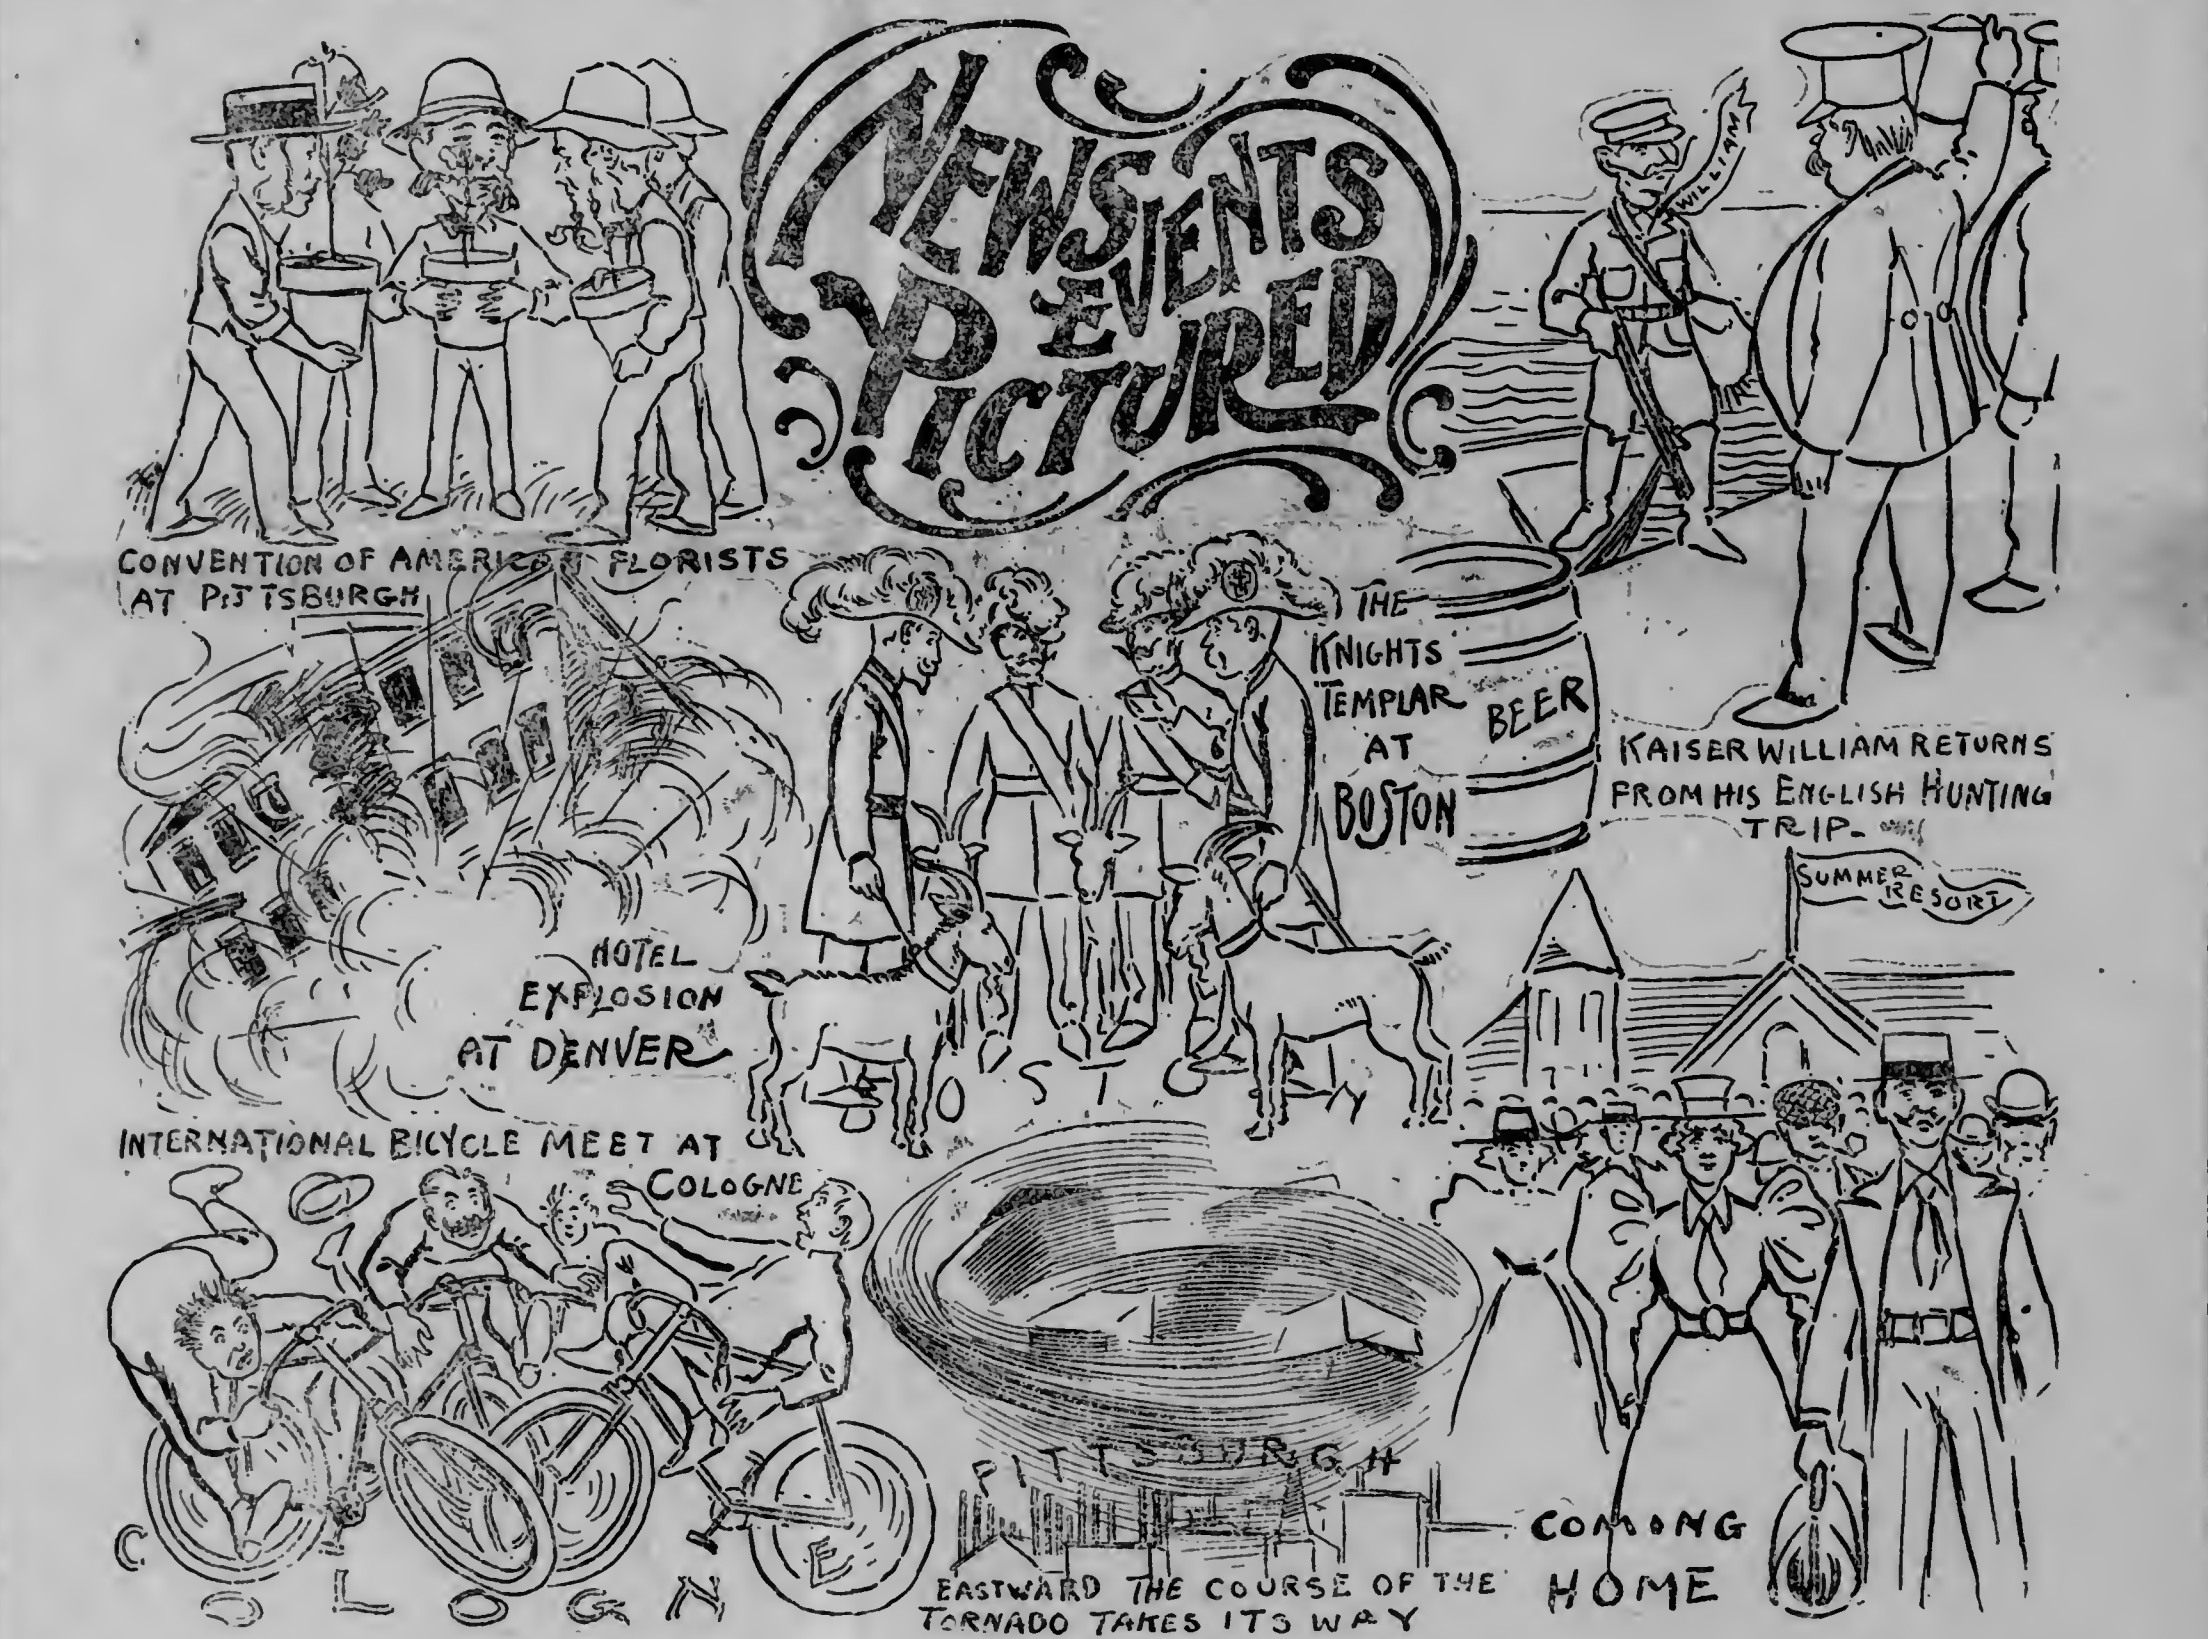 NEWS
EVENTS
PICTURED
WILLIAM
CONVENTION OF AMERICAN FLORISTS
AT PITTSBURGH
THE
KNIGHTS
TEMPLAR
AT
BOSTON
BEER
KAISER WILLIAM RETURNS
FROM HIS ENGLISH HUNTING
TRIP-
SUMMER
RESORT
HOTEL
EXPLOSION
AT DENVER
INTERNATIONAL BICYCLE MEET AT
COLOGNE
COLOGNE
PITTSBURGH
EASTWARD THE COURSE OF THE
TORNADO TAKES ITS WAY
COMING
HOME